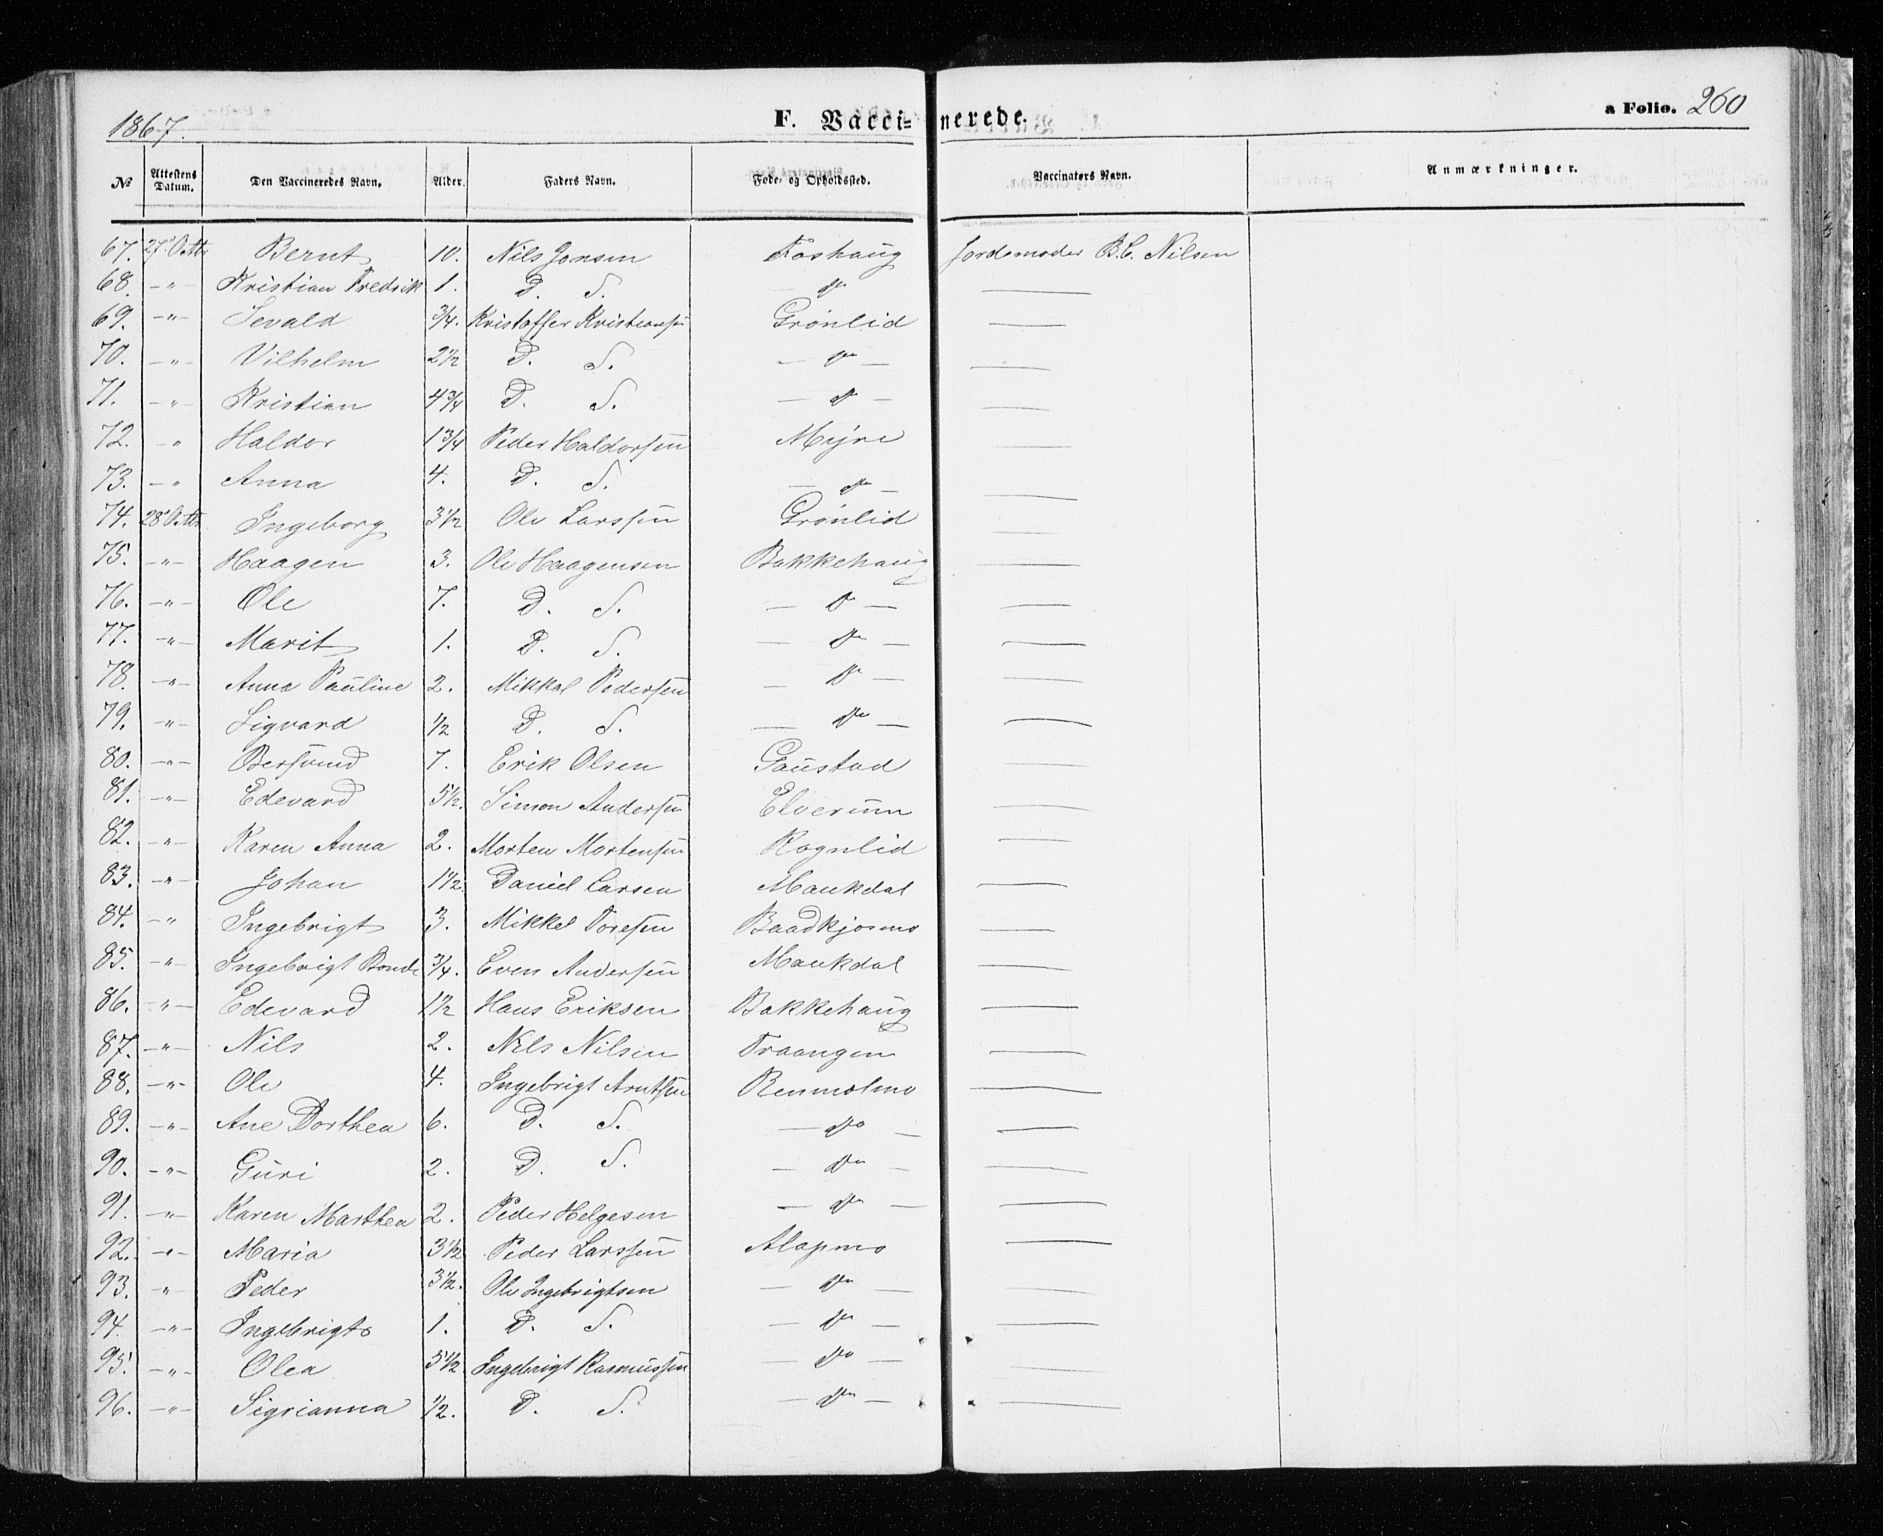 1867.
F. Vaccinerede.
a Folio. 260
№ Attestens Datum. Den Vaccineredes Navn. Alder. Faders Navn. Føde- og Opholdssted. Vaccinatørs Navn. Anmærkninger.
67. 27' Octbr Bernt 10. Nils Jonsen Foshaug Jordemoder B.C. Nilsen
68. -"- Kristian Fredrik 1. D. S. — do —
69. -"- Sevald 3/4. Kristoffer Kristiansen Grønlid —
70. -"- Vilhelm 2 1/2 D. S. — do — —
71. -"- Kristian 4 3/4 D. S. — do — —
72. -"- Haldor 1 3/4 Peder Haldorsen Myre —
73. -"- Anna 4. D. S. — do — —
74. 28' Octbr Ingeborg 3 1/2 Ole Larssen Grønlid —
75. -"- Haagen 3. Ole Haagensen Bakkehaug —
76. -"- Ole 7. D. S. — do — —
77. -"- Marit 1. D. S. — do — —
78. -"- Anna Pauline 2. Mikkal Pedersen — do — —
79. -"- Sigvard 1/2 D. S. — do — —
80. -"- Bersvend 7. Erik Olsen Gaustad —
81. -"- Edevard 5 1/2. Simon Andersen Elverum —
82. -"- Karen Anna 2. Morten Mortensen Rognlid —
83. -"- Johan 1 1/2. Daniel Larsen Maukdal —
84. -"- Ingebrigt 3. Mikkel Toresen Baadkjosmo —
85. -"- Ingebrigt Bonde 3/4. Even Andersen Maukdal —
86. -"- Edevard 1 1/2 Hans Eriksen Bakkehaug —
87. -"- Nils 2. Nels Nilsen Traangen —
88. -"- Ole 4. Ingebrigt Arntsen Renmolmo —
89. -"- Ane Dorthea 6. D. S. — do — —
90. -"- Guri 2. D. S. — do — —
91. -"- Karen Marthea 2. Peder Helgesen — do — —
92. -"- Maria 3 1/2 Peder Larssen Alapmo —
93. -"- Peder 3 1/2. Ole Ingebrigtsen — do — —
94. -"- Ingebrigt 1. D. S. — do — —
95. -"- Olea 5 1/2 Ingebrigt Rasmussen — do — —
96. -"- Sigrianna 1/2. D. S. — do — —